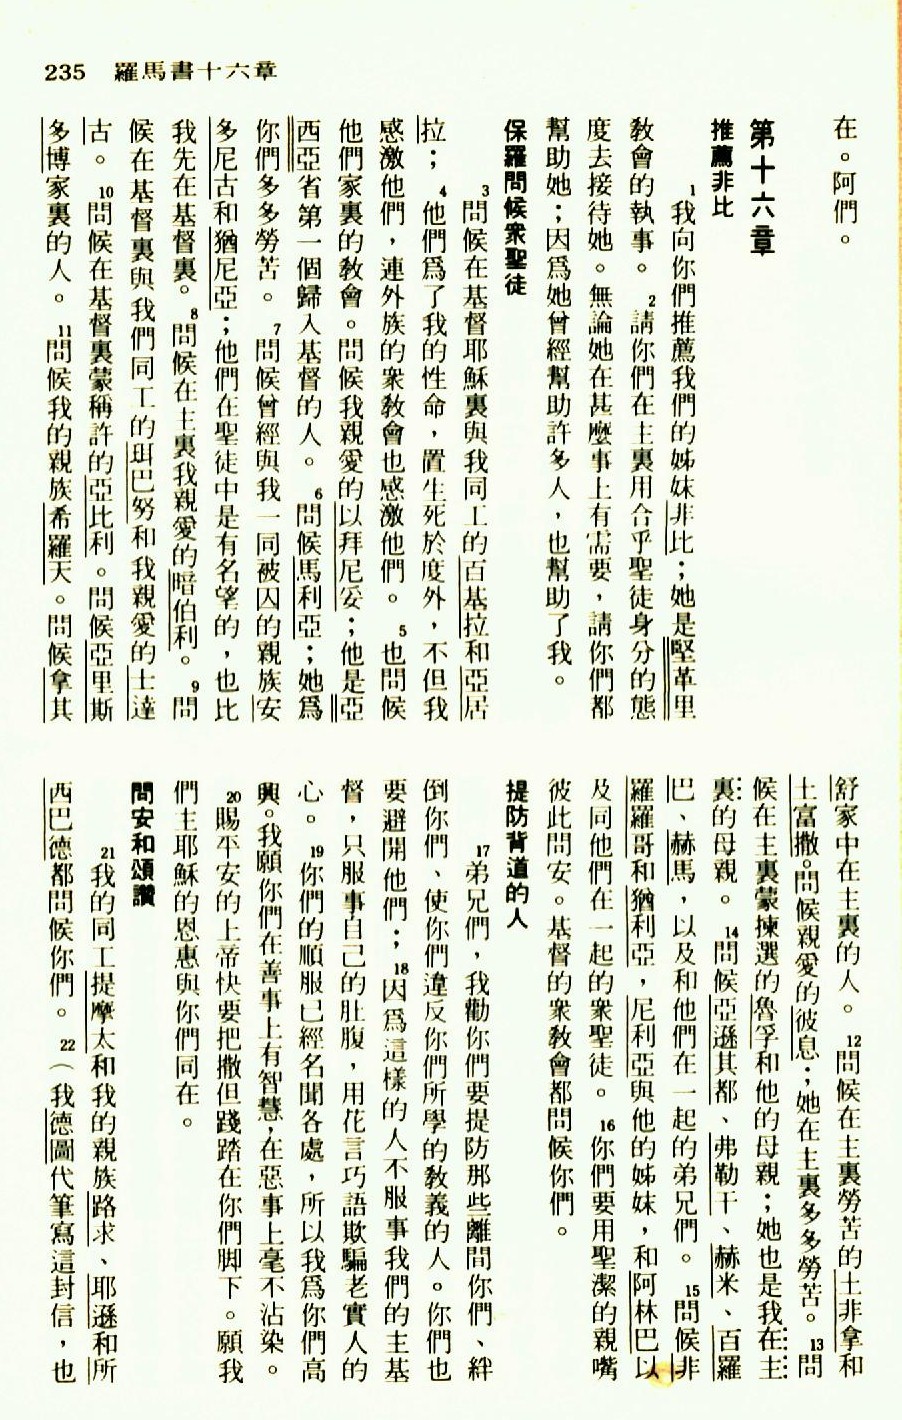 235 羅馬書十六章
在。阿們。
第十六章
推薦非比
1我向你們推薦我們的姊妹非比；她是堅革里
教會的執事。2請你們在主裏用合乎聖徒身分的態
度去接待她。無論她在甚麼事上有需要，請你們都
幫助她；因爲她曾經幫助許多人，也幫助了我。
保羅問候衆聖徒
3問候在基督耶穌裏與我同工的百基拉和亞居
拉；4他們爲了我的性命，置生死於度外，不但我
感激他們，連外族的衆教會也感激他們。5也問候
他們家裏的教會。問候我親愛的以拜尼妥；他是亞
西亞省第一個歸入基督的人。6問候馬利亞；她爲
你們多多勞苦。7問候曾經與我一同被囚的親族安
多尼古和猶尼亞；他們在聖徒中是有名望的，也比
我先在基督裏。8問候在主裏我親愛的暗伯利。9問
候在基督裏與我們同工的珥巴努和我親愛的士達
古。10問候在基督裏蒙稱許的亞比利。問候亞里斯
多博家裏的人。11問候我的親族希羅天。問候拿其
舒家中在主裏的人。12問候在主裏勞苦的土非拿和
土富撒。問候親愛的彼息；她在主裏多多勞苦。13問
候在主裏蒙揀選的魯孚和他的母親；她也是我在主
裏的母親。14問候亞遜其都、弗勒干、赫米、百羅
巴、赫馬，以及和他們在一起的弟兄們。15問候非
羅羅哥和猶利亞，尼利亞與他的姊妹，和阿林巴以
及同他們在一起的衆聖徒。16你們要用聖潔的親嘴
彼此問安。基督的衆教會都問候你們。
提防背道的人
17弟兄們，我勸你們要提防那些離間你們、絆
倒你們、使你們違反你們所學的教義的人。你們也
要避開他們；18因爲這樣的人不服事我們的主基
督，只服事自己的肚腹，用花言巧語欺騙老實人的
心。19你們的順服已經名聞各處，所以我爲你們高
興。我願你們在善事上有智慧，在惡事上毫不沾染。
20賜平安的上帝快要把撒但踐踏在你們脚下。願我
們主耶穌的恩惠與你們同在。
問安和頌讚
21我的同工提摩太和我的親族路求、耶遜和所
西巴德都問候你們。22（我德圖代筆寫這封信，也